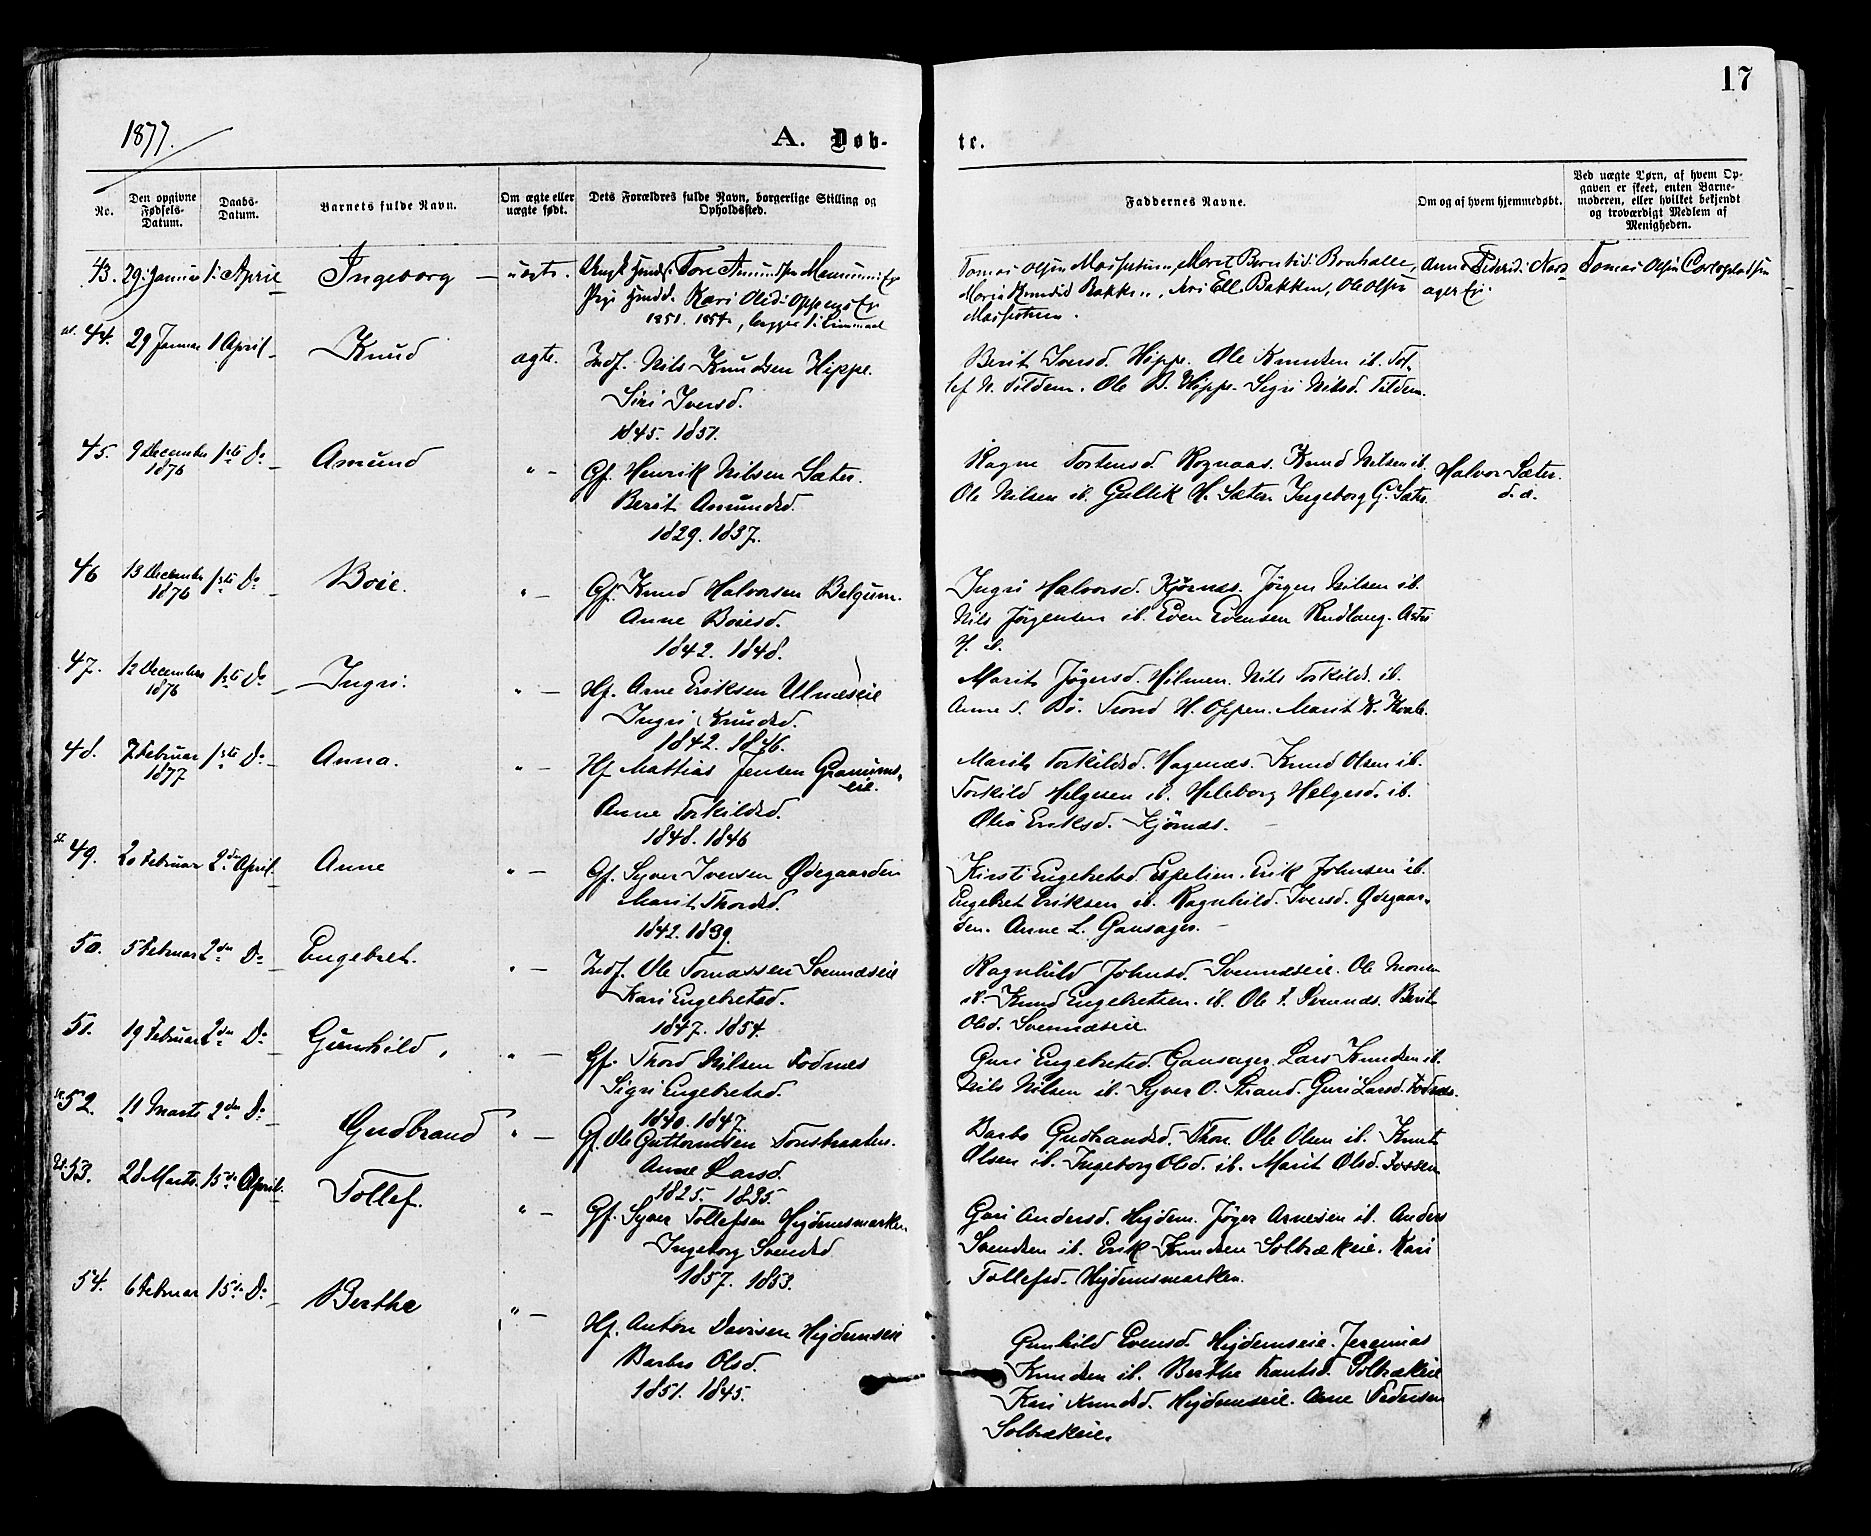 17
1877.
A. Døb-
te.
No.
Den opgivne Fødsels-Datum.
Daabs-Datum.
Barnets fulde Navn.
Om ægte eller uægte født.
Dets Forældres fulde Navn, borgerlige Stilling og Opholdssted.
Faddernes Navne.
Om og af hvem hjemmedøbt.
Ved uægte Børn, af hvem Op-
gaven er skeet, enten Barne-
moderen, eller hvilket bekjendt
og troværdigt Medlem af
Menigheden.
43. 29 Januar 1 April Ingeborg uægte.
Kari Olsd.
1851. 1854, begge
Tomas Olsen
44. 29 Januar 1 April Knud ægte. Indf. Nils Knudsen Hippe.
Siri Iversd.
1845. 1851.
Berit Iversd. Hippe. Ole Knudsen ib. Tol-
lef N. Tildem. Ole B. Hippe. Sigri Nilsd. Tildem.
45. 9 December 1ste Do Amund " Gf. Henrik Nilsen Sæter.
1876
Berit Amundsd.
1829. 1837.
Ragne Torstensd. Rognaas. Knud Nilsen ib.
Ole Nilsen ib. Gullik H. Sæter. Ingeborg G. Sæter.
Halvor Sæter.
d. a.
46 13 December 1ste Do Boie. " Gf. Knud Halvorsen Belgum.
1876
Anne Boiesd.
1842. 1848.
Ingri Halvorsd. Kjørnes. Jørgen Nilsen ib.
Nils Jørgensen ib. Even Evensen Rudlang.
47. 12 December 1ste Do Ingri. " Hf. Arne Eriksen Ulnæseie
1876
Ingri Knudsd.
1842. 1846.
Marit Jøgersd. Hilmen. Nils Torkilds. ib.
Anne T. Bø. Trond H. Oppen. Marit K.
48. 7 Februar 1ste Do Anna. " Hf Mattias Jensen Granums-
1877
eie.
Anne Torkildsd.
1848. 1846
Marit Torkildsd. Hagenæs. Knud Olsen ib.
Torkild Helgesen ib. Heleborg Helgesd. ib.
Olia Eriksd. Kjørnæs.
49. 20 Februar 2den April Anne " Gf. Syver Iversen Ødegaarden
Marit Thordsd.
1842. 1839.
Kirsti Engebretsd. Espelien. Erik Johnsen ib.
Engebret Eriksen ib. Ragnhild Iversd. Ødegaar-
den. Anne L. Gausager.
50. 5 Februar 2den Do Engebret. " Indf. Ole Tomassen Svennæseie
Kari Engebretsd.
1847. 1854.
Ragnhild Johnsd. Svennæseie. Ole
ib. Knud Engebretsen ib. Ole T. Svennæs. Berit
Olsd. Svennæseie
51. 19 Februar 2den Do Gunhild. " Gf. Thord Nilsen Fodnæs
Sigri Engebretsd.
1840. 1847.
Guri Engebretsd. Gausager. Lars Knudsen ib.
Nils Nilsen ib. Syver O. Strand. Guri Larsd. Fodnæs.
52. 11 Marts 2den Do Gudbrand " Gf. Ole Guttormsen Tonsbraaten.
Anne Larsd.
1825. 1835.
Barbo Gudbrandsd. Thon. Ole Olsen ib. Knut
Olsen ib. Ingeborg Olsd. ib. Marit Olsd. Fossen
53. 28 Marts 15de April. Tollef. " Gf. Syver Tollefsen Hejdemsmarken.
Ingeborg Svendsd
1857. 1853.
Guri Andersd. Hejdem. Jøger Arnesen ib. Anders
Svendsen ib. Erik Knudsen Solbrækeie. Kari
Tollefsd. Hejdemsmarken.
54. 6 Februar 15de Do Berthe " Hf. Anton Davisen Hejdemseie
Barbro Olsd.
1851. 1845.
Gunhild Evensd. Hejdemseie. Jeremias
Knudsen ib. Berthe Knutsd. Solbrækeie
Kari Knudsd. Hejdemseie. Arne Pedersen
Solbrækeie.